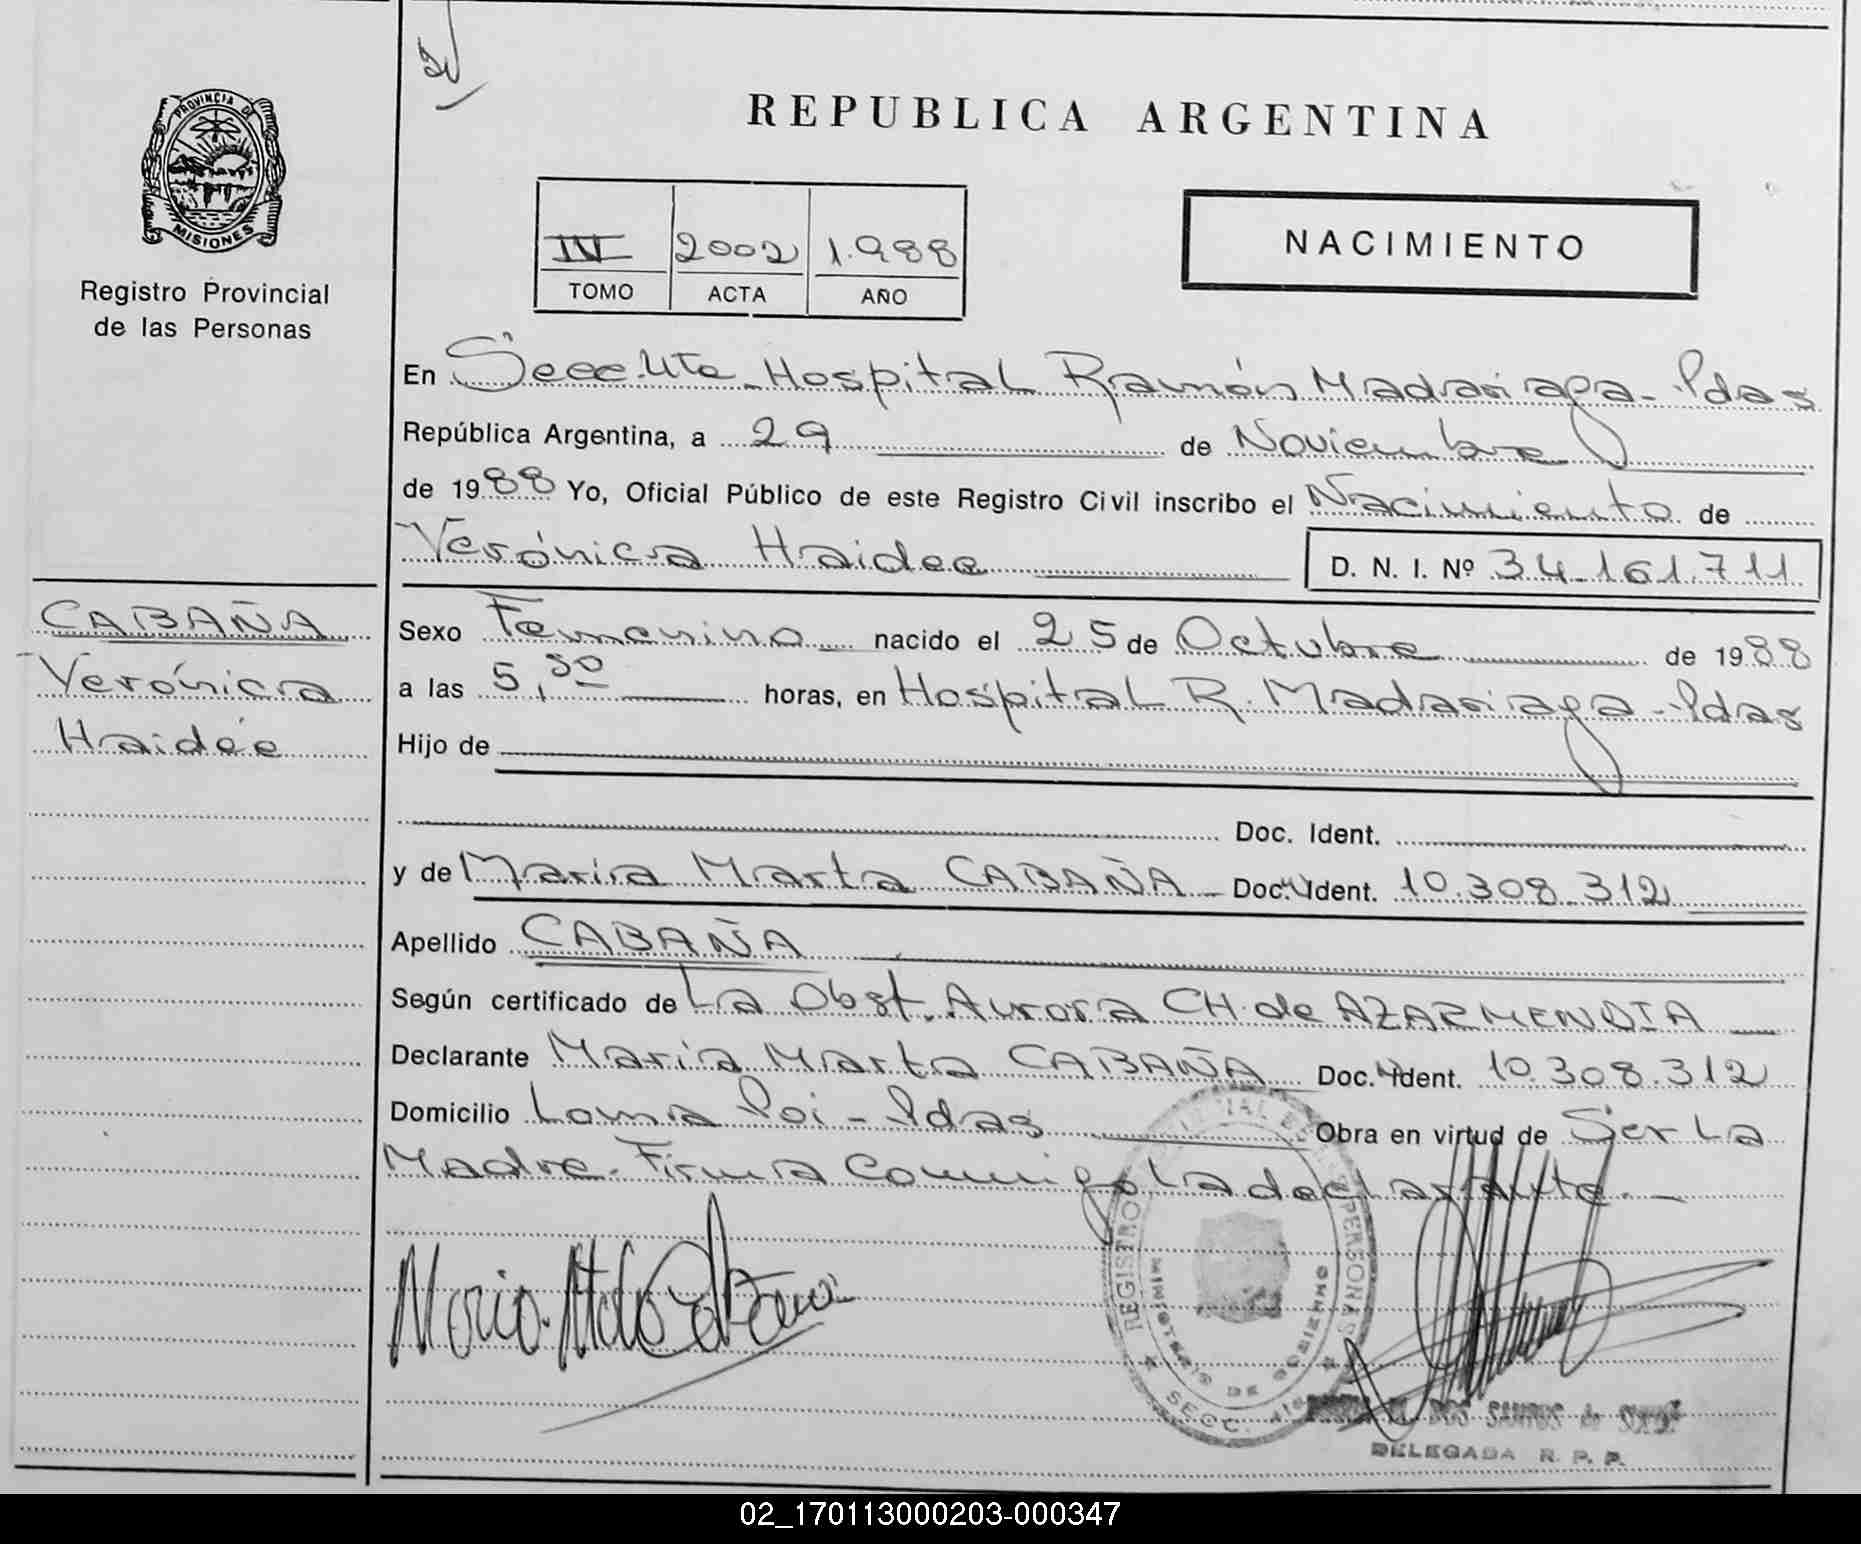 PROVINCIA DE
MISIONES
Registro Provincial
de las Personas
REPUBLICA ARGENTINA
IV 2002 1.988
TOMO ACTA AÑO
NACIMIENTO
En Secc. 4ta. Hospital Ramón Madariaga - Pdas
República Argentina, a 29 de Noviembre
de 1988 Yo, Oficial Público de este Registro Civil inscribo el Nacimiento de
Verónica Haidee D. N. I. Nº 34.161.711
CABAÑA
Verónica
Haidée
Sexo Femenino nacido el 25 de Octubre de 1988
a las 5, horas, en Hospital R. Madariaga - Pdas
Hijo de
Doc. Ident.
y de María Marta CABAÑA - Doc. Ident. 10.308.312
Apellido CABAÑA
Según certificado de La Obst. Aurora CH. de AZARMENDIA
Declarante María Marta CABAÑA Doc. Ident. 10.308.312
Domicilio Loma Poi - Pdas Obra en virtud de Ser La
Madre. Firma Conmigo La declarante. -
REGISTRO PROVINCIAL DE LAS PERSONAS
MINISTERIO DE GOBIERNO
SECC. 4ta
DOS SANTOS de
DELEGADA R. P. P.
02_170113000203-000347